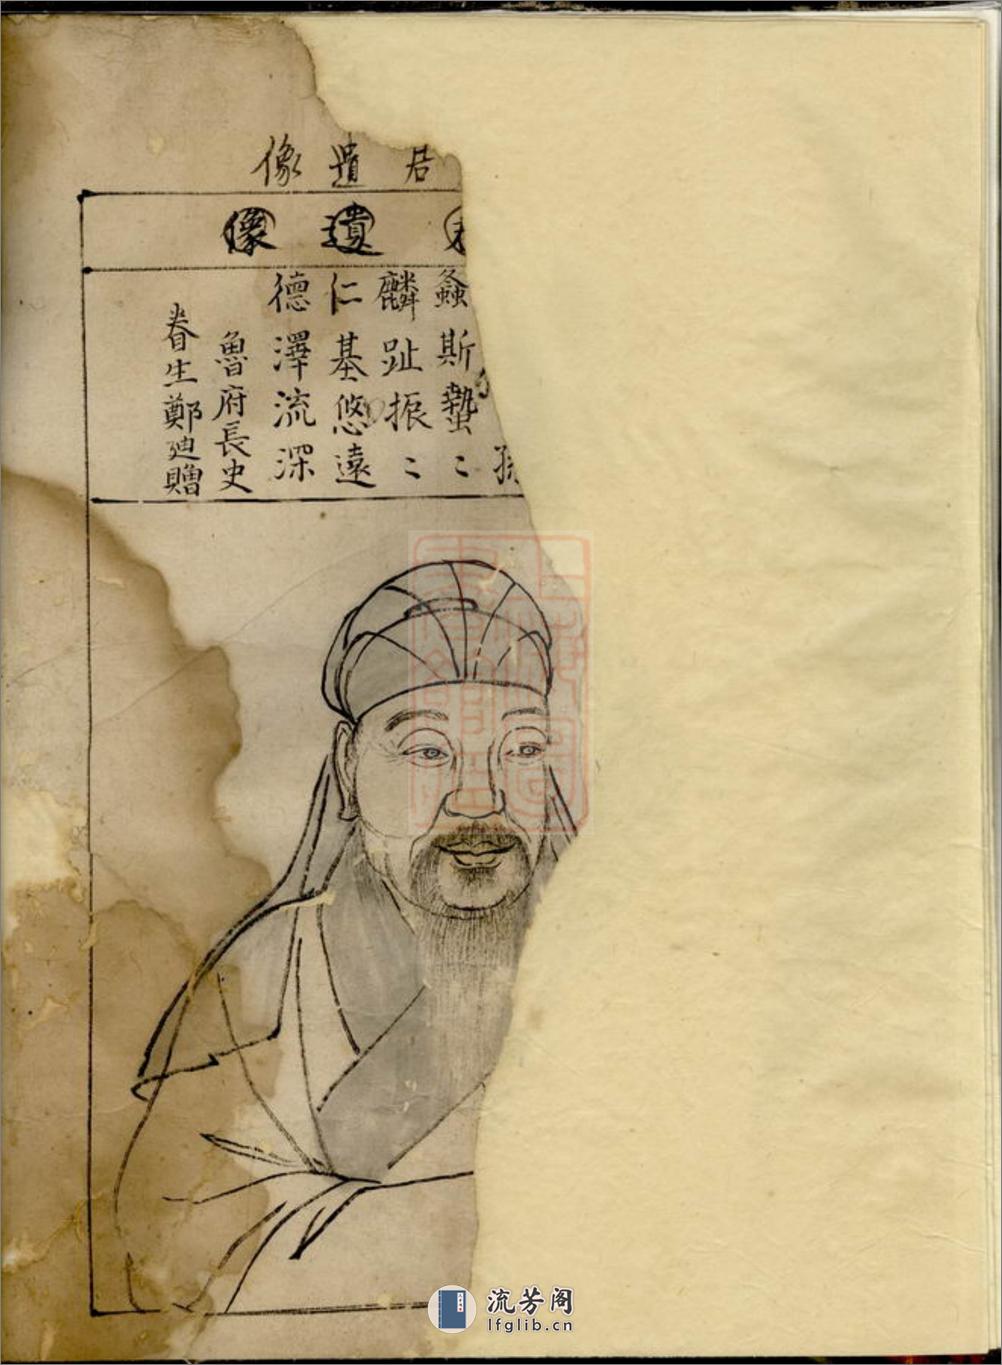 君遺像
遺像
孫
螽斯蟄〻
麟趾振〻
仁基悠遠
德澤流深
魯府長史
眷生鄭廸贈
上海圖書館藏
流芳阁
lfglib.cn